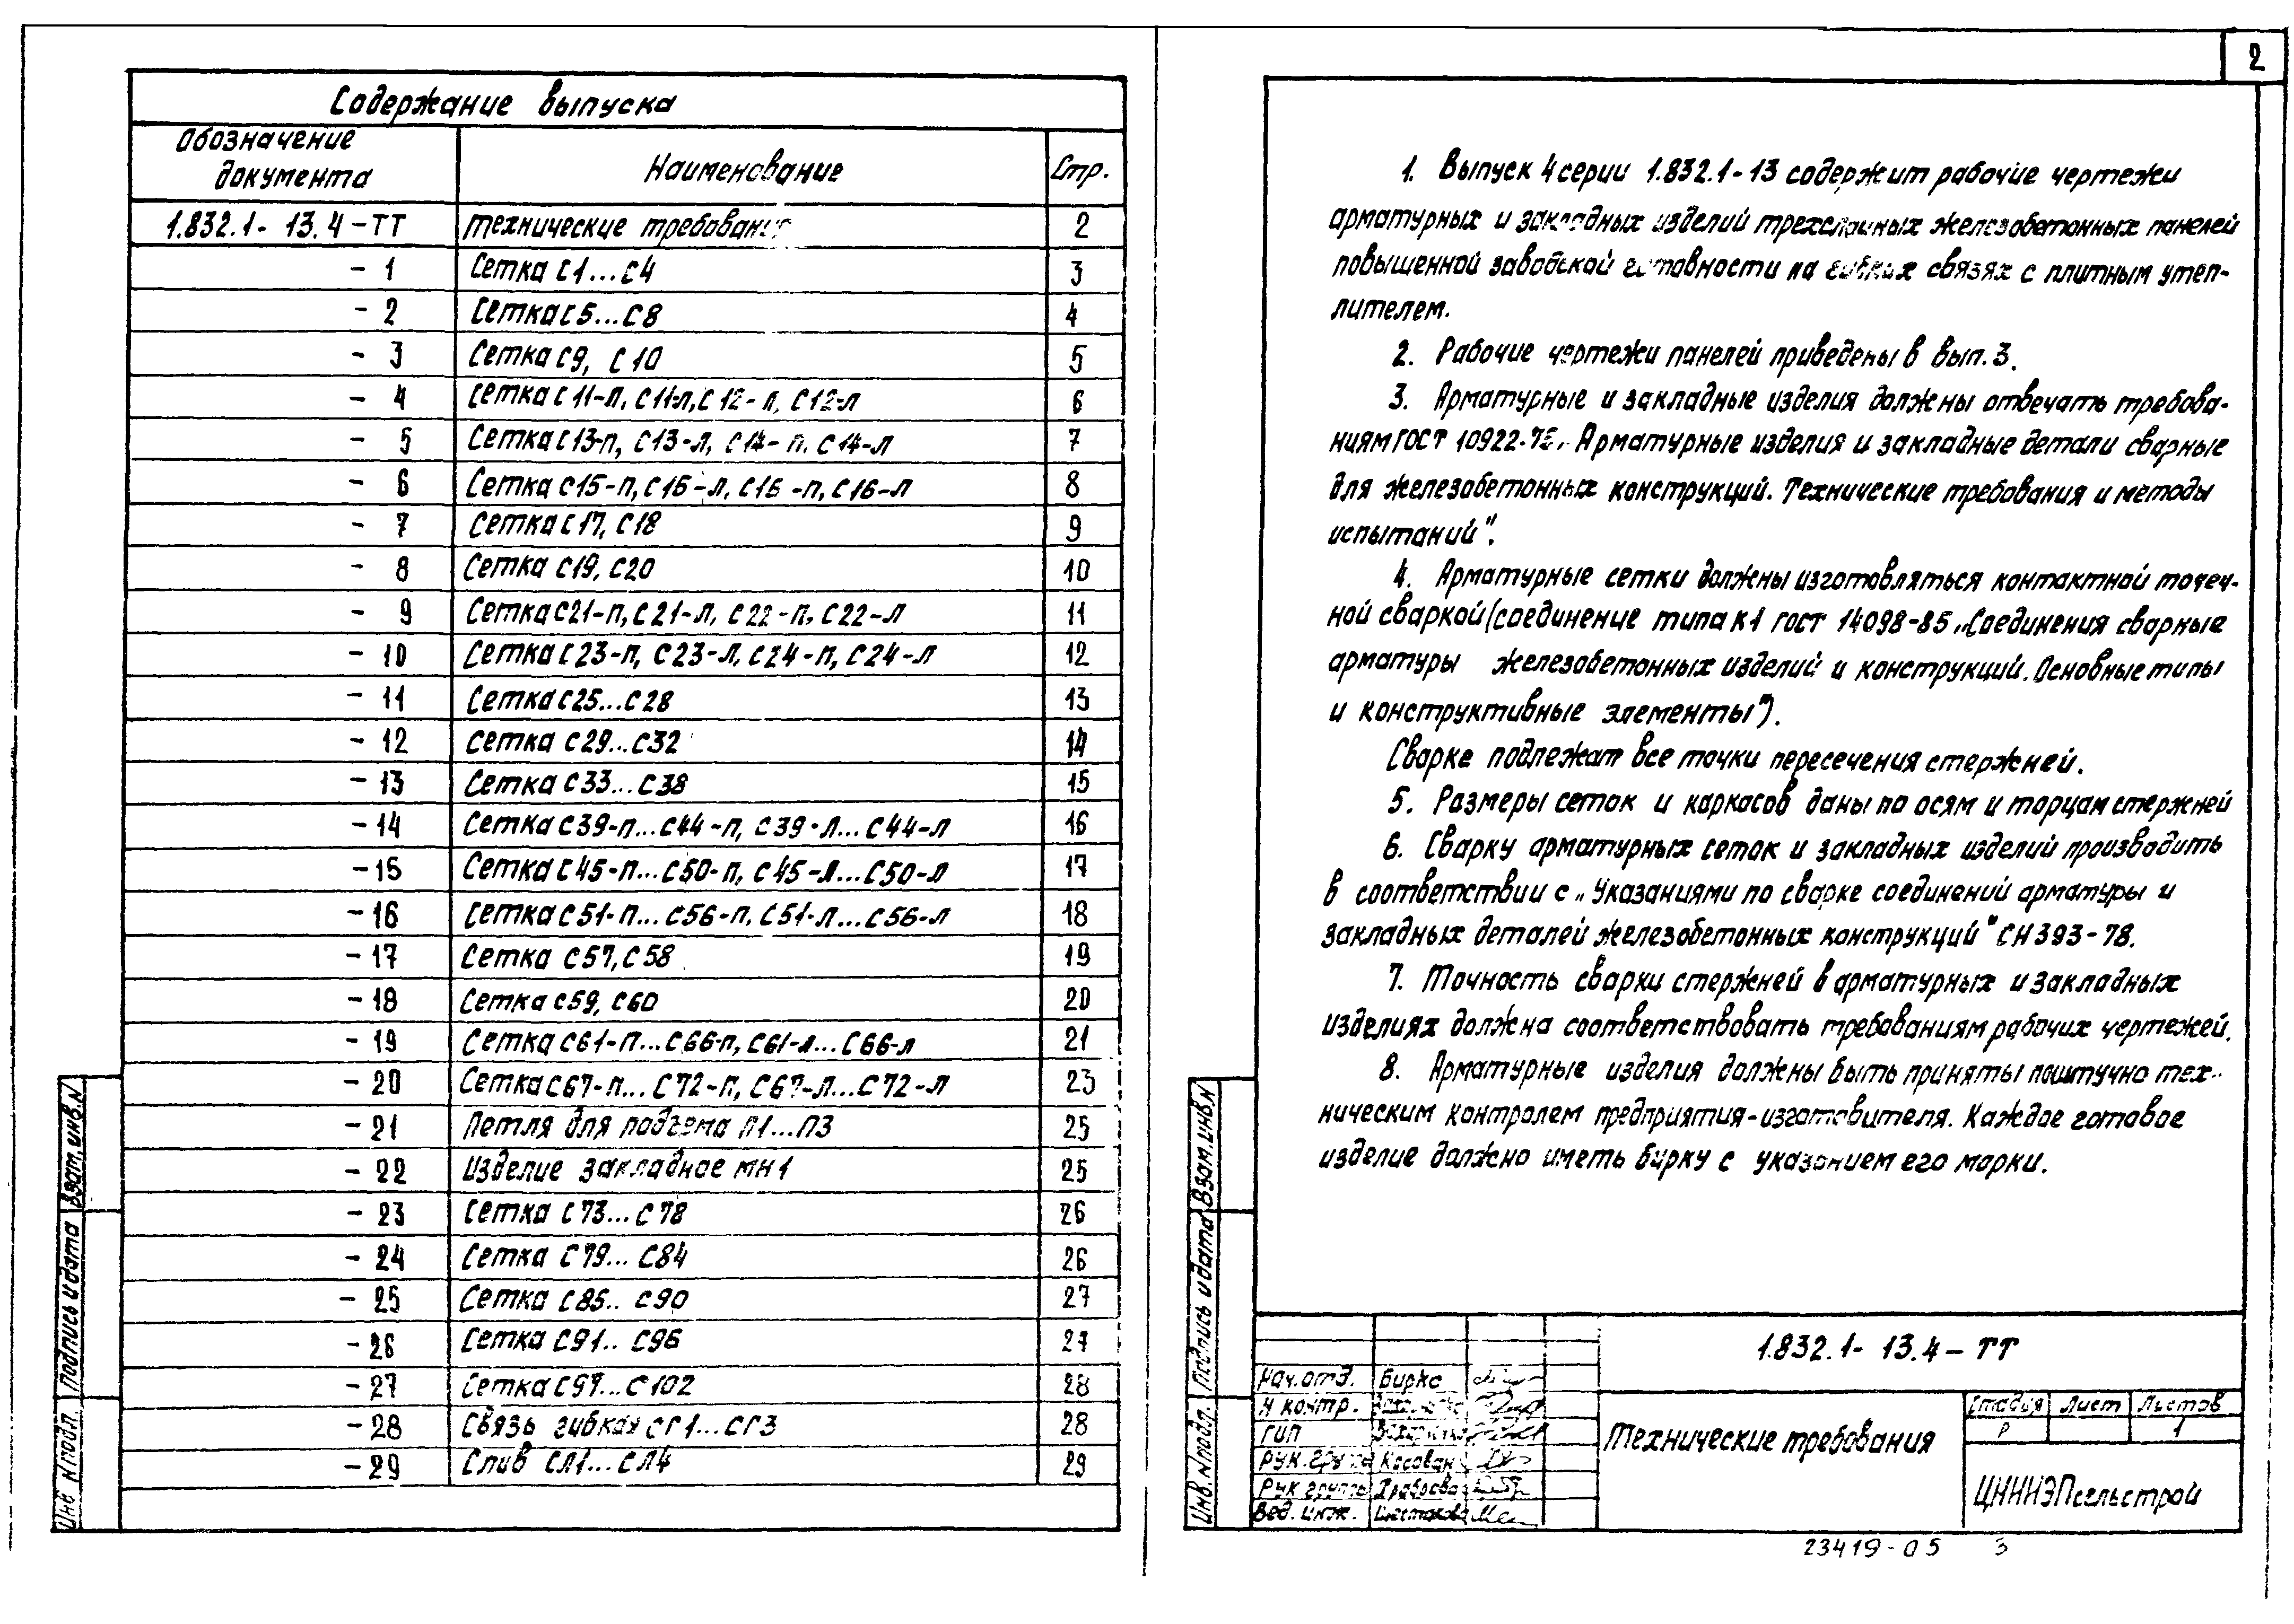 Содержание выпуска
Обозначение документа Наименование Стр.
1.832.1- 13.4-ТТ Технические требования 2
- 1 Сетка С1...С4 3
- 2 Сетка С5...С8 4
- 3 Сетка С9, С10 5
- 4 Сетка С11-п, С11-л, С12-п, С12-л 6
- 5 Сетка С13-п, С13-л, С14-п, С14-л 7
- 6 Сетка С15-п, С15-л, С16-п, С16-л 8
- 7 Сетка С17, С18 9
- 8 Сетка С19, С20 10
- 9 Сетка С21-п, С21-л, С22-п, С22-л 11
- 10 Сетка С23-п, С23-л, С24-п, С24-л 12
- 11 Сетка С25...С28 13
- 12 Сетка С29...С32 14
- 13 Сетка С33...С38 15
- 14 Сетка С39-п...С44-п, С39-л...С44-л 16
- 15 Сетка С45-п...С50-п, С45-л...С50-л 17
- 16 Сетка С51-п...С56-п, С51-л...С56-л 18
- 17 Сетка С57, С58 19
- 18 Сетка С59, С60 20
- 19 Сетка С61-п...С66-п, С61-л...С66-л 21
- 20 Сетка С67-п...С72-п, С67-л...С72-л 23
- 21 Петля для подъема П1...П3 25
- 22 Изделие закладное МН1 25
- 23 Сетка С73...С78 26
- 24 Сетка С79...С84 26
- 25 Сетка С85..С90 27
- 26 Сетка С91..С96 27
- 27 Сетка С97...С102 28
- 28 Связь гибкая СГ1...СГ3 28
- 29 Слив СЛ1...СЛ4 29
Инв N подл. Подпись и дата Взам.инв.N
2
1. Выпуск 4 серии 1.832.1-13 содержит рабочие чертежи
арматурных и закладных изделий трехслойных железобетонных панелей
повышенной заводской готовности на гибких связях с плитным утеп-
лителем.
2. Рабочие чертежи панелей приведены в вып.3.
3. Арматурные и закладные изделия должны отвечать требова-
ниям ГОСТ 10922-75 „Арматурные изделия и закладные детали сварные
для железобетонных конструкций. Технические требования и методы
испытаний".
4. Арматурные сетки должны изготовляться контактной точеч-
ной сваркой (соединение типа К1 ГОСТ 14098-85 „Соединения сварные
арматуры железобетонных изделий и конструкций. Основные типы
и конструктивные элементы").
Сварке подлежат все точки пересечения стержней.
5. Размеры сеток и каркасов даны по осям и торцам стержней
6. Сварку арматурных сеток и закладных изделий производить
в соответствии с „Указаниями по сварке соединений арматуры и
закладных деталей железобетонных конструкций" СН393-78.
7. Точность сварки стержней в арматурных и закладных
изделиях должна соответствовать требованиям рабочих чертежей.
8. Арматурные изделия должны быть приняты поштучно тех-
ническим контролем предприятия-изготовителя. Каждое готовое
изделие должно иметь бирку с указанием его марки.
Инв.N подл. Подпись и дата Взам.инв.N
1.832.1- 13.4-ТТ
Нач.отд. Бирко
Н контр.
ГИП
Рук.группы Косован
Рук группы
Вед. инж.
Технические требования
Стадия Лист Листов
Р 1
ЦНИИЭПсельстрой
23419-05 3